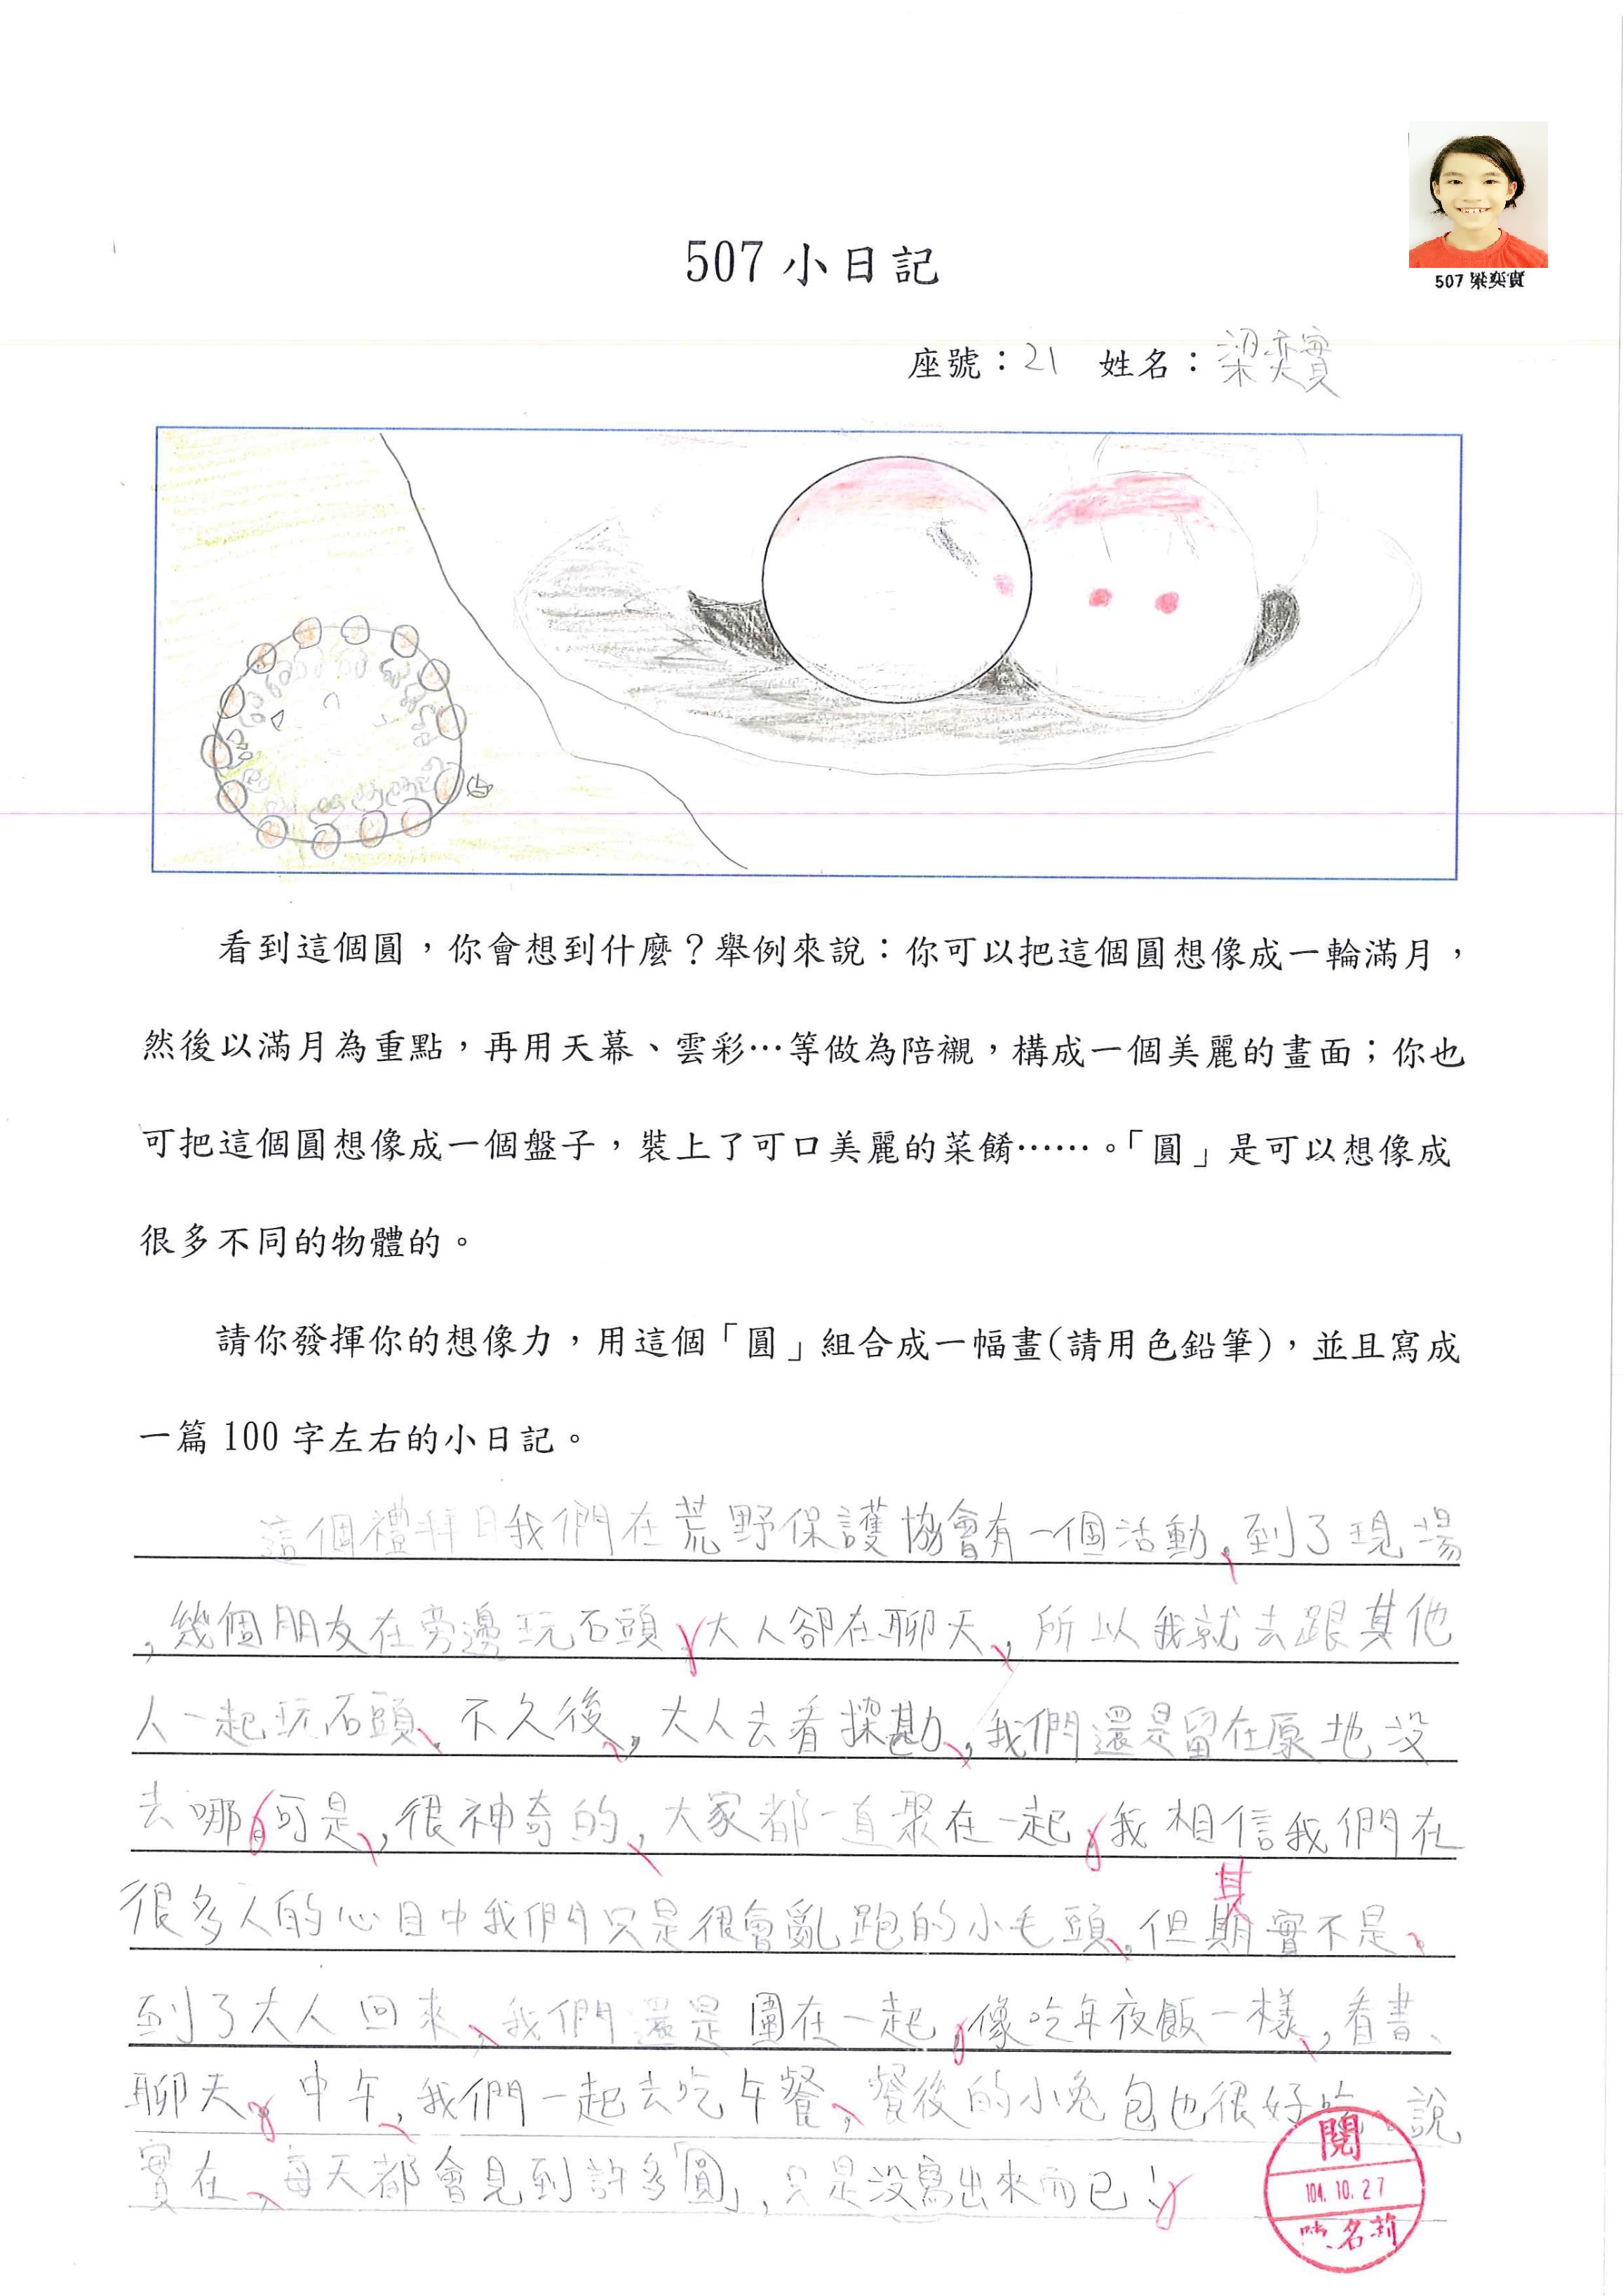 507 梁奕實
507 小日記
座號：21 姓名：梁奕實
看到這個圓，你會想到什麼？舉例來說：你可以把這個圓想像成一輪滿月，
然後以滿月為重點，再用天幕、雲彩…等做為陪襯，構成一個美麗的畫面；你也
可把這個圓想像成一個盤子，裝上了可口美麗的菜餚……。「圓」是可以想像成
很多不同的物體的。
請你發揮你的想像力，用這個「圓」組合成一幅畫(請用色鉛筆)，並且寫成
一篇 100 字左右的小日記。
這個禮拜日我們在荒野保護協會有一個活動，到了現場
，幾個朋友在旁邊玩石頭，大人卻在聊天，所以我就去跟其他
人一起玩石頭，不久後，大人去看探勘，我們還是留在原地沒
去哪。可是，很神奇的，大家都一直聚在一起，我相信我們在
其
很多人的心目中我們只是很會亂跑的小毛頭，但期實不是，
到了大人回來，我們還是圍在一起，像吃年夜飯一樣，看書、
聊天。中午，我們一起去吃午餐，餐後的小兔包也很好吃。說
實在，每天都會見到許多「圓」，只是沒寫出來而已！
閱
104.10.27
名莉